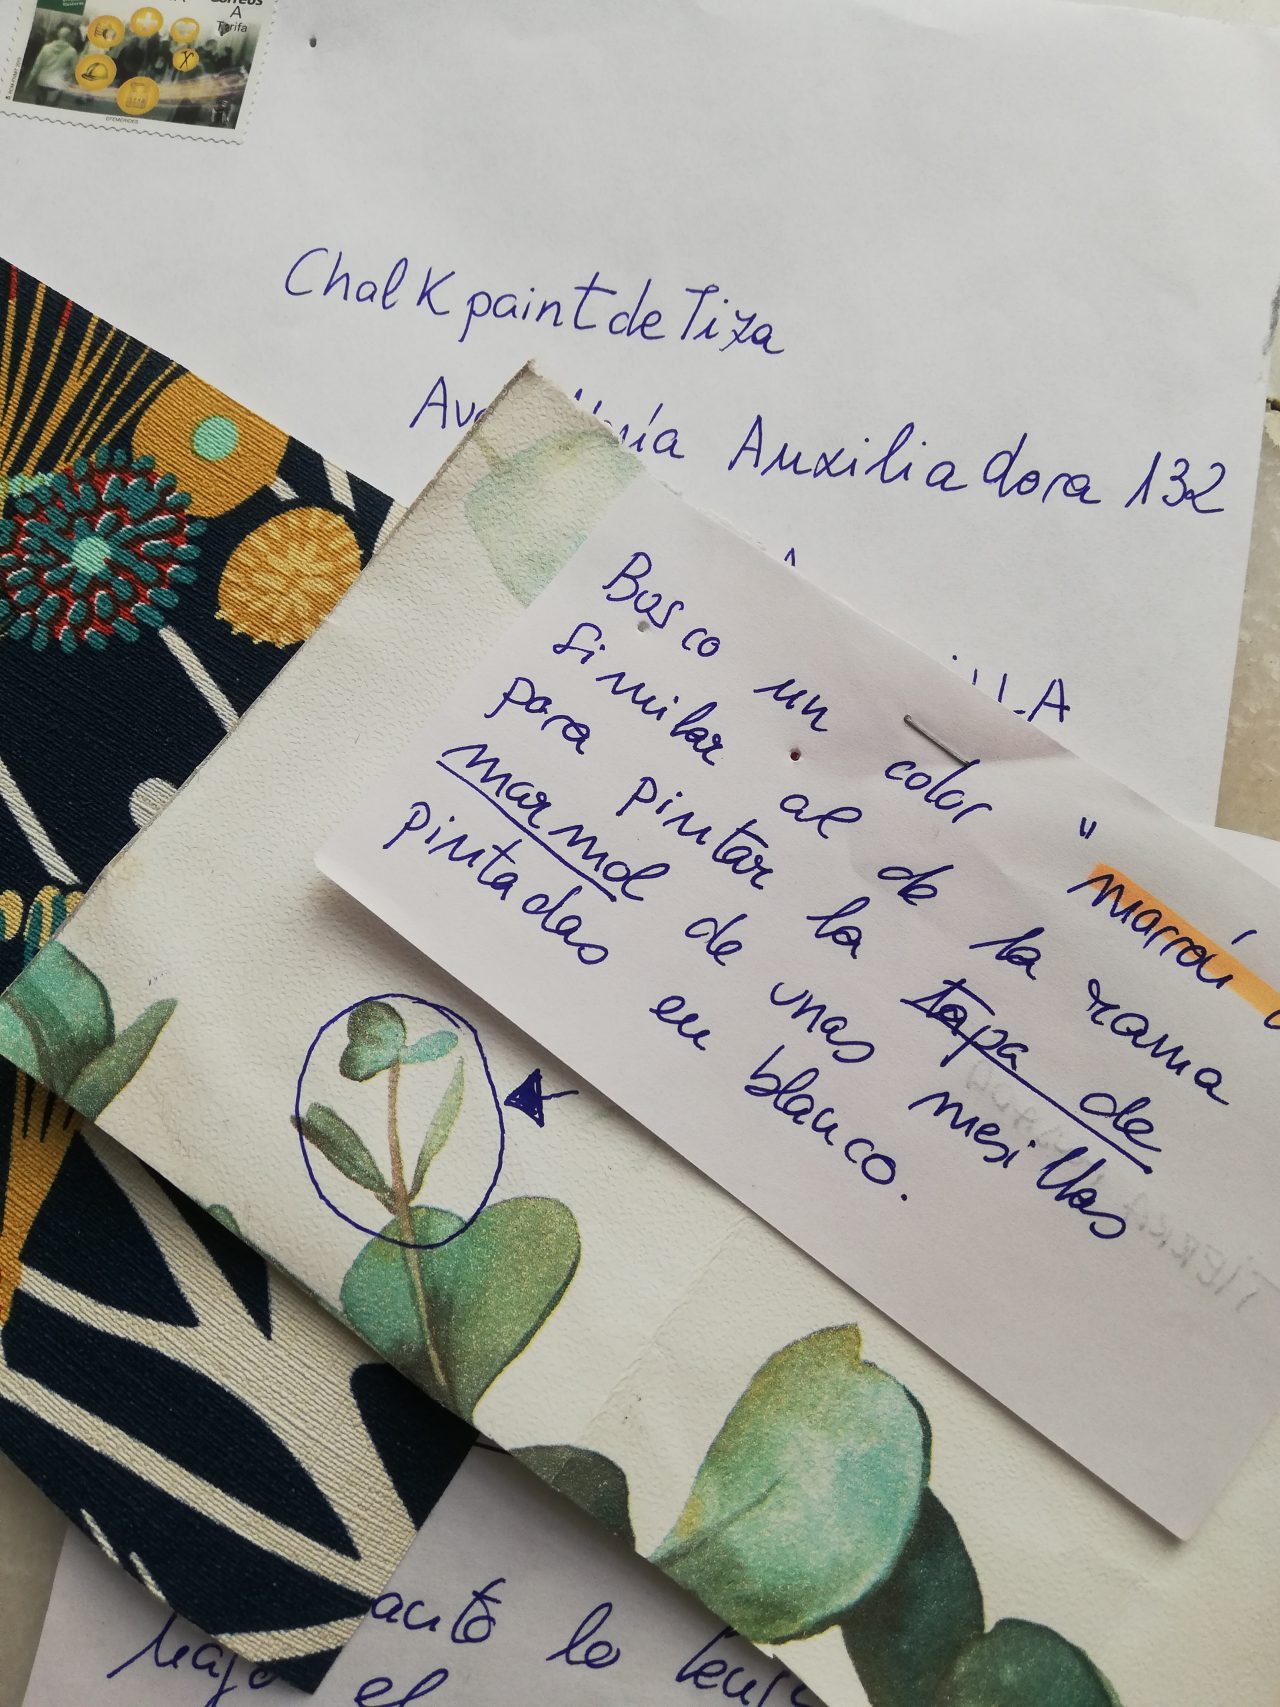 Correos
A
Tarifa
EFEMÉRIDES
Chalk paint de Tiza
María Auxiliadora 132
Busco un color "marrón
similar al de la rama
para pintar la tapa de
marmol de unas mesillas
pintadas en blanco.
TIERRA
lo
el